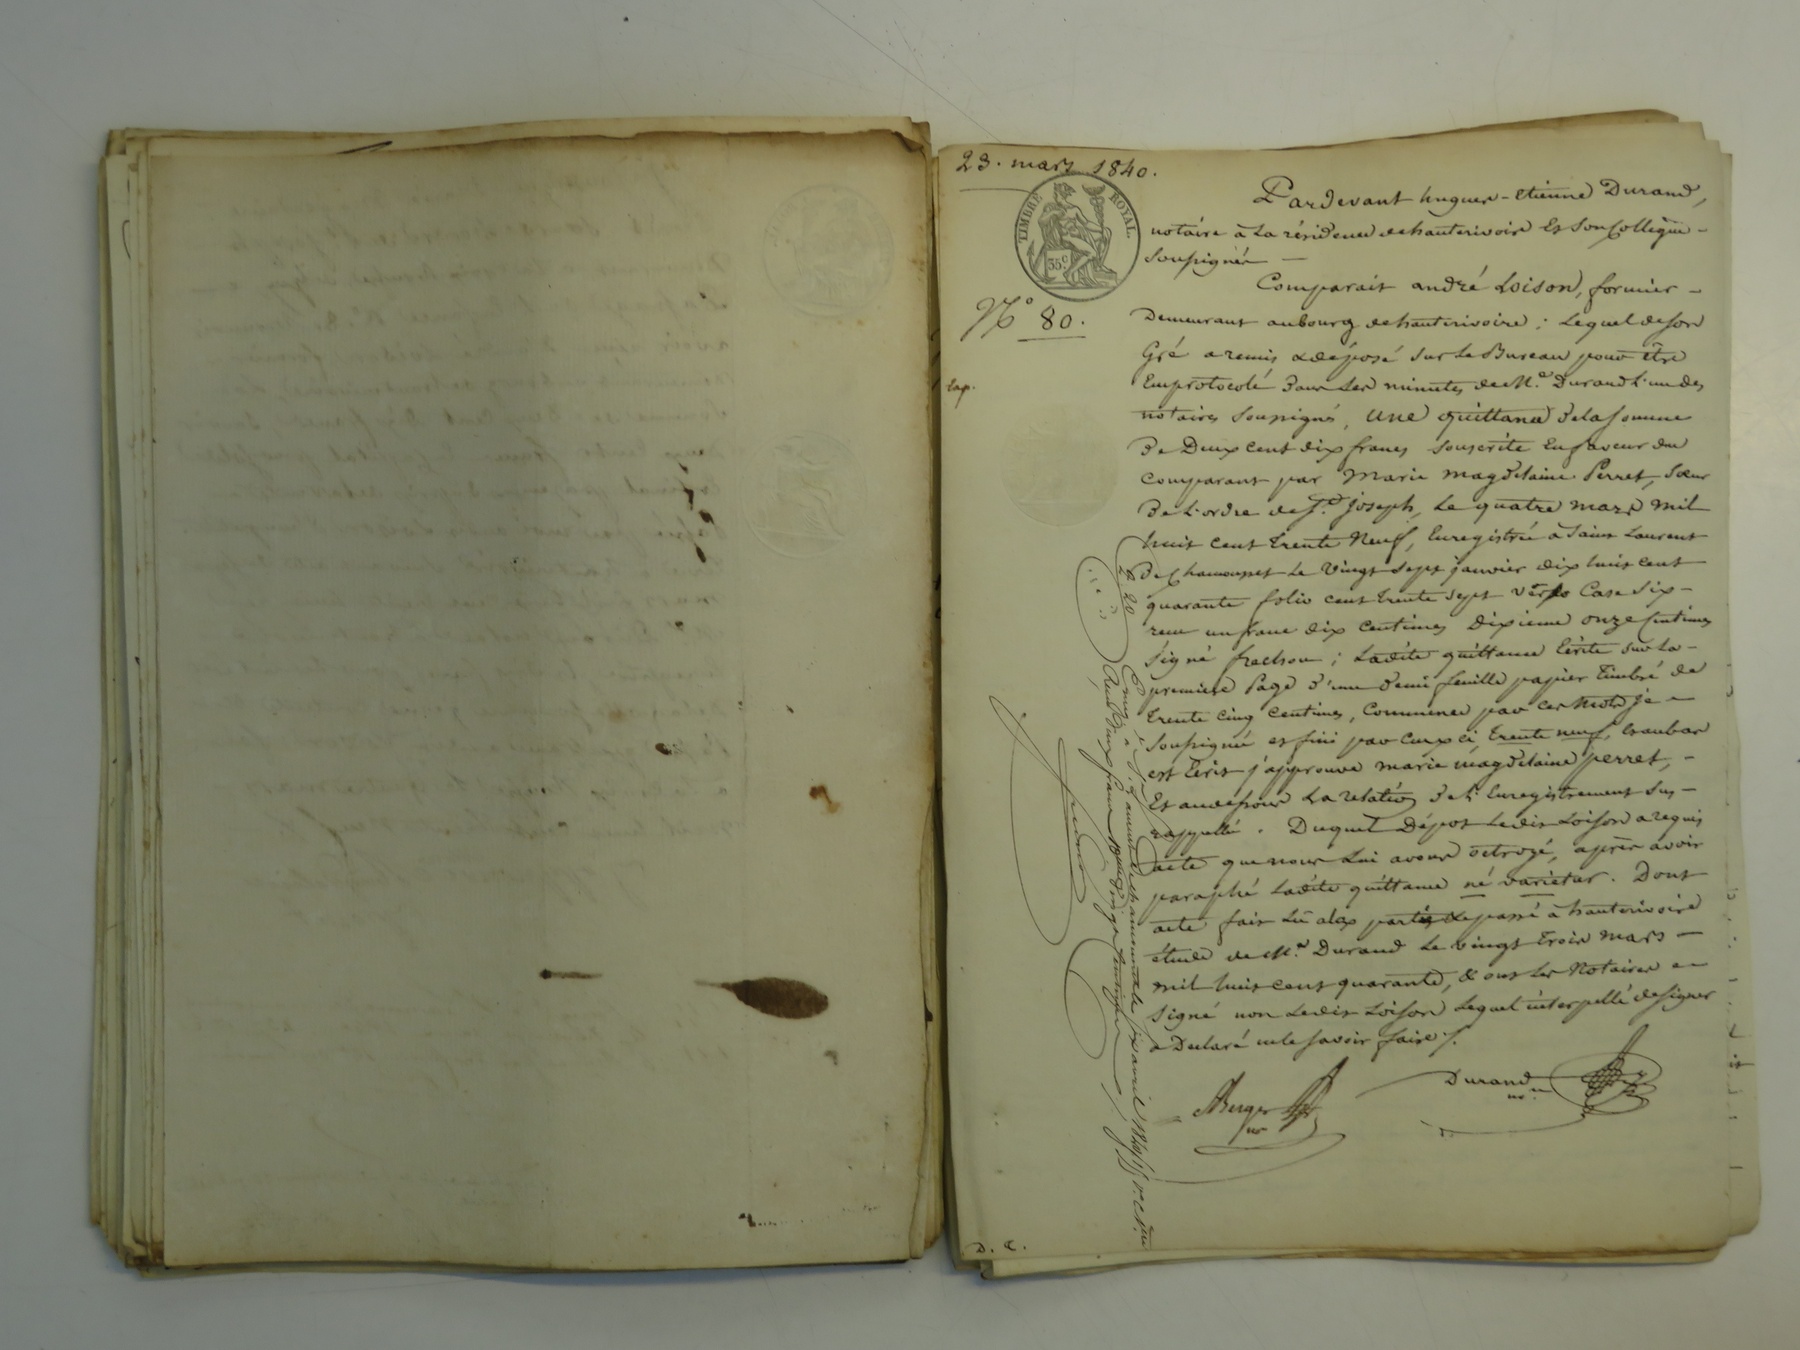 23. mars 1840.
TIMBRE ROYAL.
35 c.
N.° 80.
Exp.
Pardevant hugues-etienne Durand,
notaire à la résidence de hauterivoire et son Collègue
soussignés —
Comparait andré Loison, fermier —
Demeurant au bourg de hauterivoire ; Lequel de son
Gré a remis & déposé sur le Bureau pour être
Emprotocolé dans les minutes de M.e Durand L'un des
notaires soussignés, une quittance de la somme
de Deux cent dix francs souscrite En faveur du
comparant par Marie magdelaine Perret, Sœur
De L'ordre de St. Joseph, Le quatre mars mil
huit cent trente Neuf, Enregistrée à Saint Laurent
De Chamousset Le Vingt sept janvier dix huit cent
quarante folio cent trente sept verso Case Six —
reçu un franc dix centimes Dixième onze Centimes
Signé frachon ; Ladite quittance Ecrite sur La —
première Page d'une demi feuille papier timbré de
trente cinq centimes, Commence par ces mots Je —
soussignée et fini par Ceux ci, trente neuf, Et au bas
est Ecris j'approuve marie magdelaine perret, —
Et au dessous La relation de L'Enregistrement sus —
rappellé. Duquel Dépot Ledit Loison a requis
acte que nous Lui avons octroyé, après avoir
paraphé Ladite quittance né variétur. Dont
acte fait Lû aux parties & passé à hauterivoire
étude de M.e Durand Le vingt trois mars —
mil huit cent quarante, & ont Les Notaires —
signé non Ledit Loison Lequel interpellé de signer
a Declaré ne le savoir faire /.
Berger
nre
Durand
nre.
2 20
Reçu Deux francs vingt centimes
avril 1840
D. C.